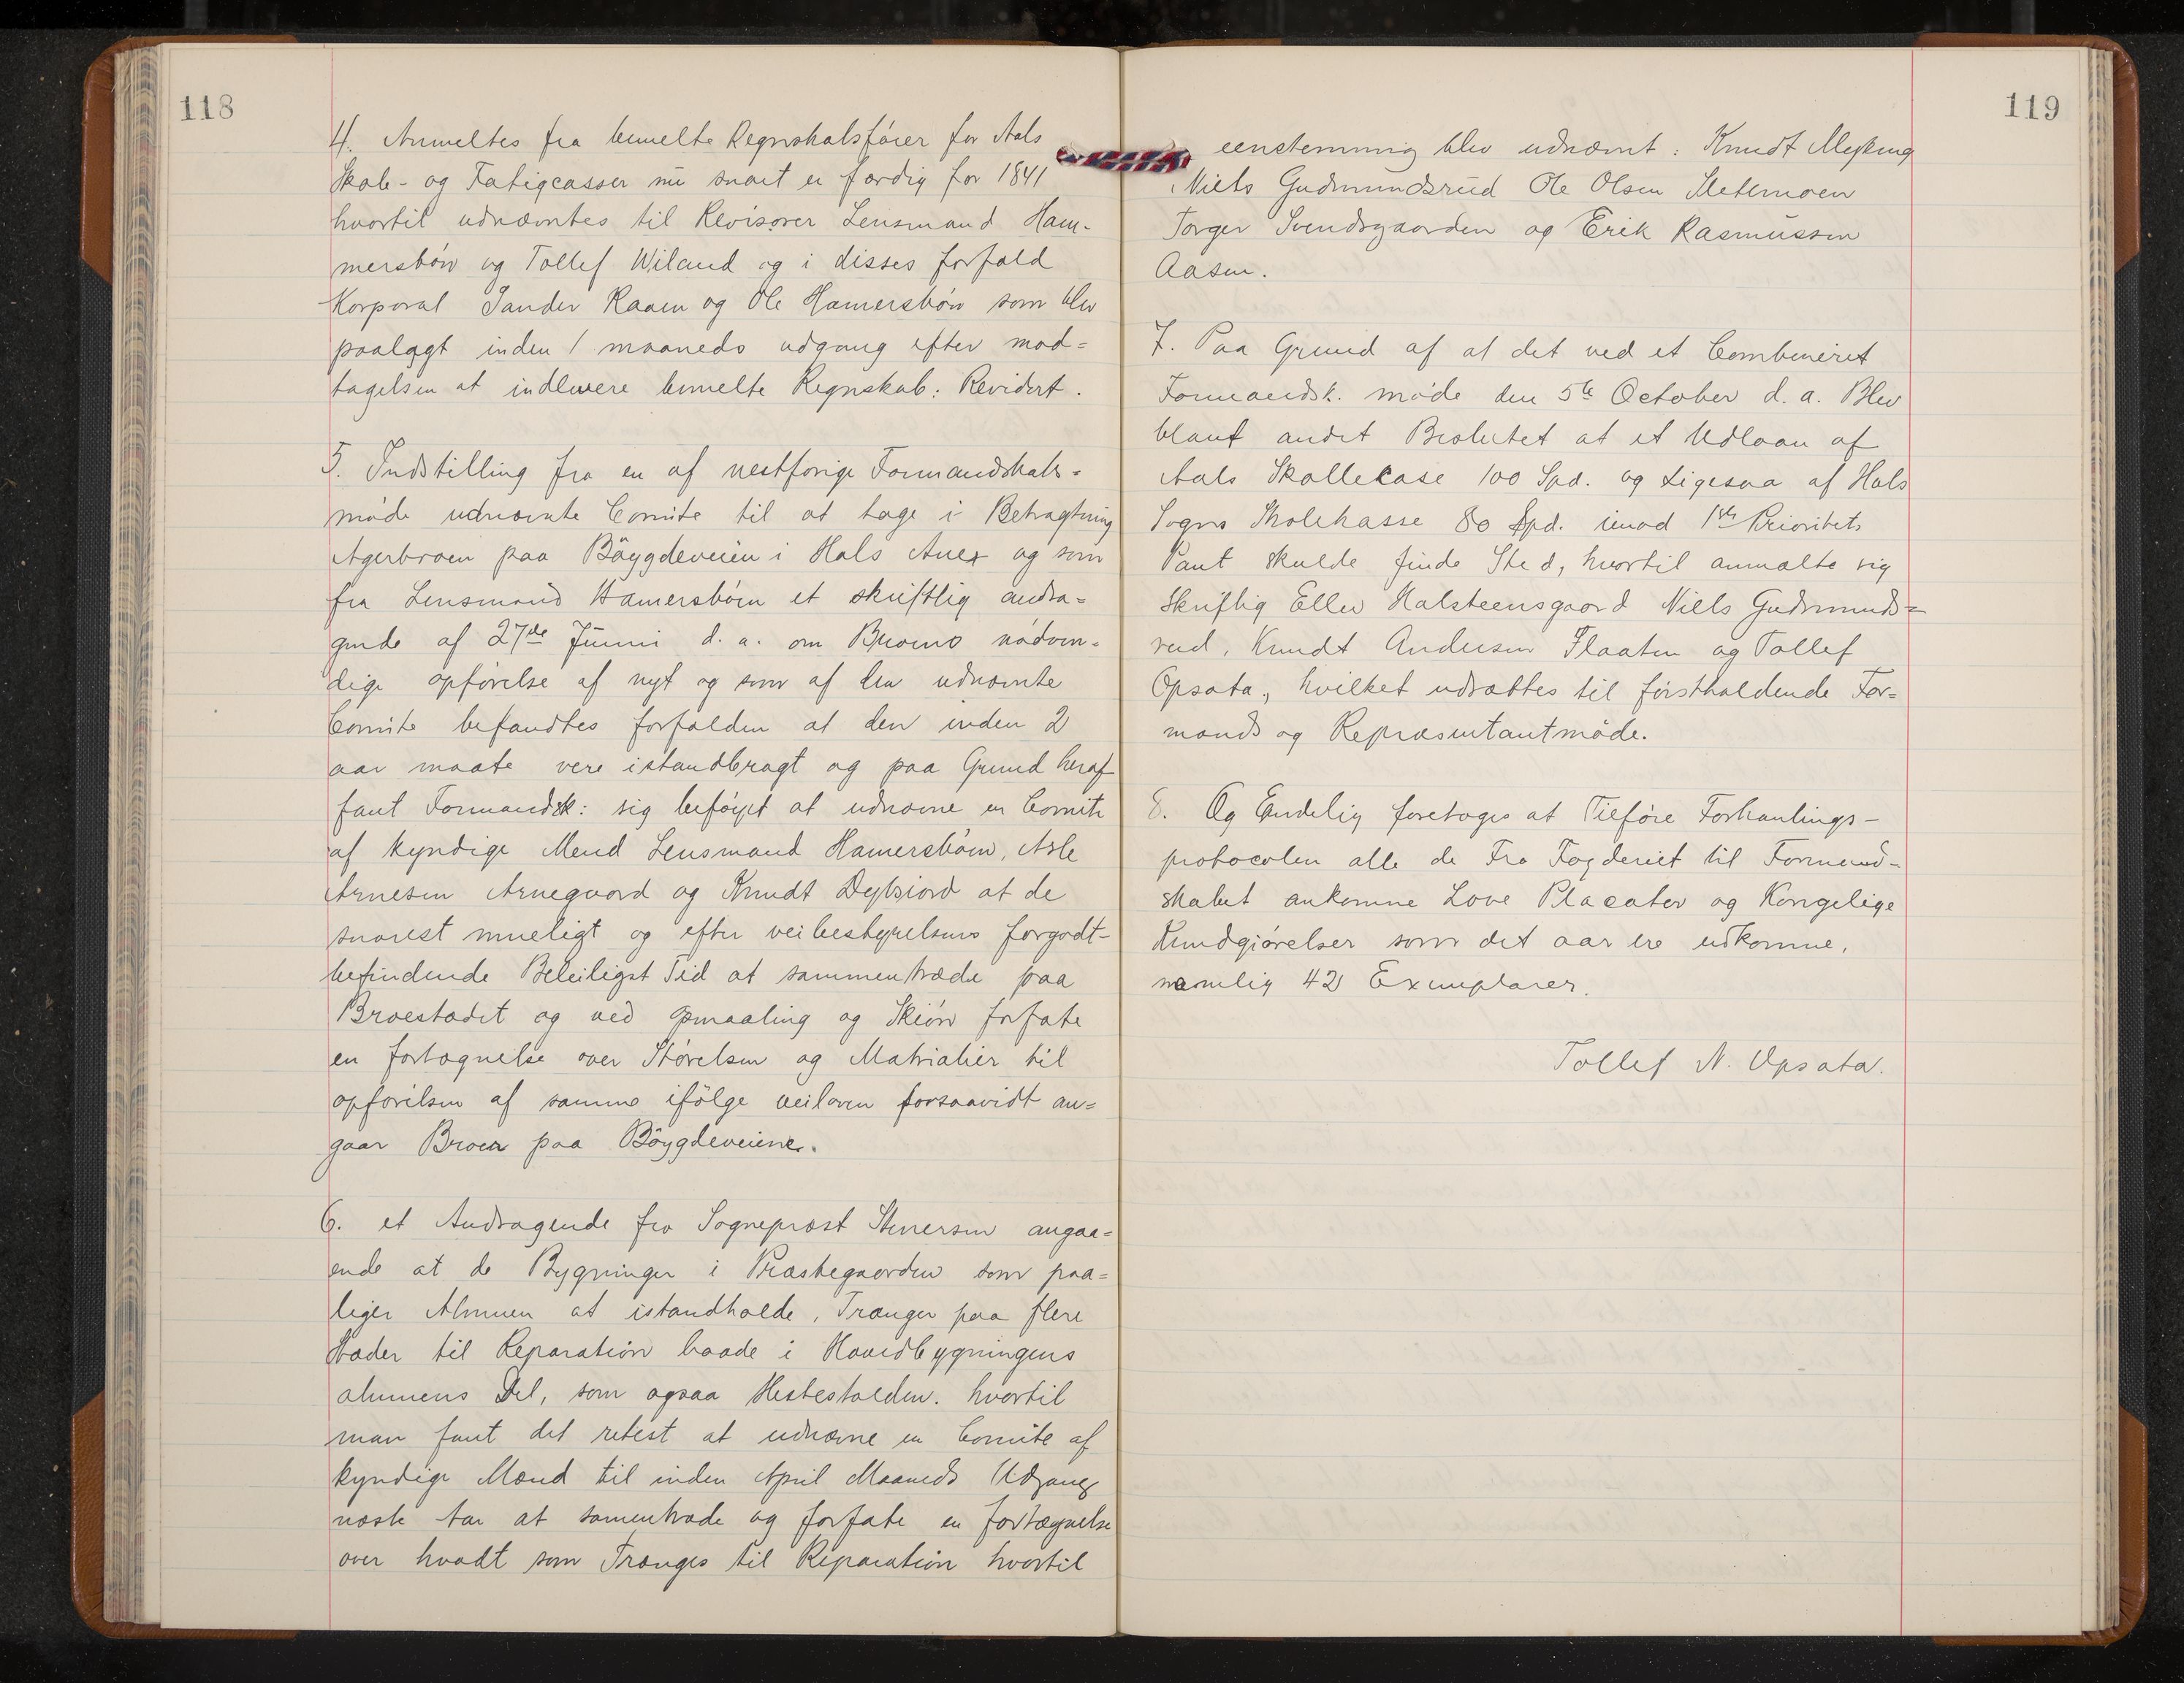 118
4. Anmeltes fra bemelte Regnskabsfører for Aals
Skole- og Fatigcasser nu snart er færdig for 1841
hvortil udnævntes til Revisorer Lensmand Ham-
mersbøn og Tollef Wiland og i disses forfald
Korporal Sander Raaen og Ole Hamersbøn som blev
paalagt inden 1 maaneds udgang efter mod=
tagelsen at indlevere bemelte Regnskab: Revidert.
5. Indstilling fra en af nestforige Formandskabs=
møde udnævnte Comite til at tage i Betragtning
Agerbroen paa Böygdeveien i Hols Anex og som
fra Lensmand Hamersbøen et skriftlig andra=
gende af 27de Junni d. a. om Broens nødven=
dige opførelse af nyt og som af den udnævnte
Comite befandtes forfalden at den inden 2
aar maate vere istandbragt og paa Grund heraf
fant Formandsk: sig beføyet at udnævne en Comite
af kyndige Mend Lensmand Hamersbøen, Asle
Arnesen Arnegaard og Knudt Dybsiord at de
snarest mueligt og efter veibestyrelsens forgodt-
befindende Beleiligst Tid at sammentræde paa
Broestædet og ved opmaaling og Skiøn forfate
en fortegnelse over Størelsen og Matrialier til
opførelsen af samme ifølge veiloven forsaavidt an=
gaar Broer paa Böygdeveiene.
6. et Andragende fra Sogneprest Stenersen angaa=
ende at de Bygninger i Præstegaarden som paa=
liger Almuen at istandholde, Trænger paa flere
Stæder til Reparation baade i Hovedbygningens
almuens Del, som ogsaa Hestestalden. hvortil
man fant det retest at udnævne en Comite af
kyndige Mænd til inden April Maaneds Udgang
næste Aar at samentræde og forfate en fortægnelse
over hvadt som Trænges til Reparation hvortil
119
eenstemmig blev udnæmt: Knudt Myking
Niels Gudmundsrud Ole Olsen Sletemoen
Torger Svendsgaarden og Erik Rasmussen
Aasen.
7. Paa Grund af at det ved et Combineret
Formandsk. møde den 5te October d. a. Blev
blant andet Besluttet at et Udlaan af
Aals Skollecase 100 Spd. og Ligesaa af Hols
Sogns Skolekasse 80 Spd. imod 1ste Prioritets
Pant skulde finde Sted, hvortil anmelte sig
Skriftlig Ellev Halsteensgaard Niels Gudmunds=
rud, Knudt Andersen Flaaten og Tollef
Opsata, hvilket udsættes til førstholdende For=
mands og Repræsentantmøde.
8. Og Endelig foretoges at Tilføre Forhanlings-
protocolen alle de Fra Fogderiet til Formand-
skabet ankomne Love Placater og Kongelige
Kundgiørelser som det aar ere udkomne,
nemlig 42 Exemplarer.
Tollef N. Opsata.